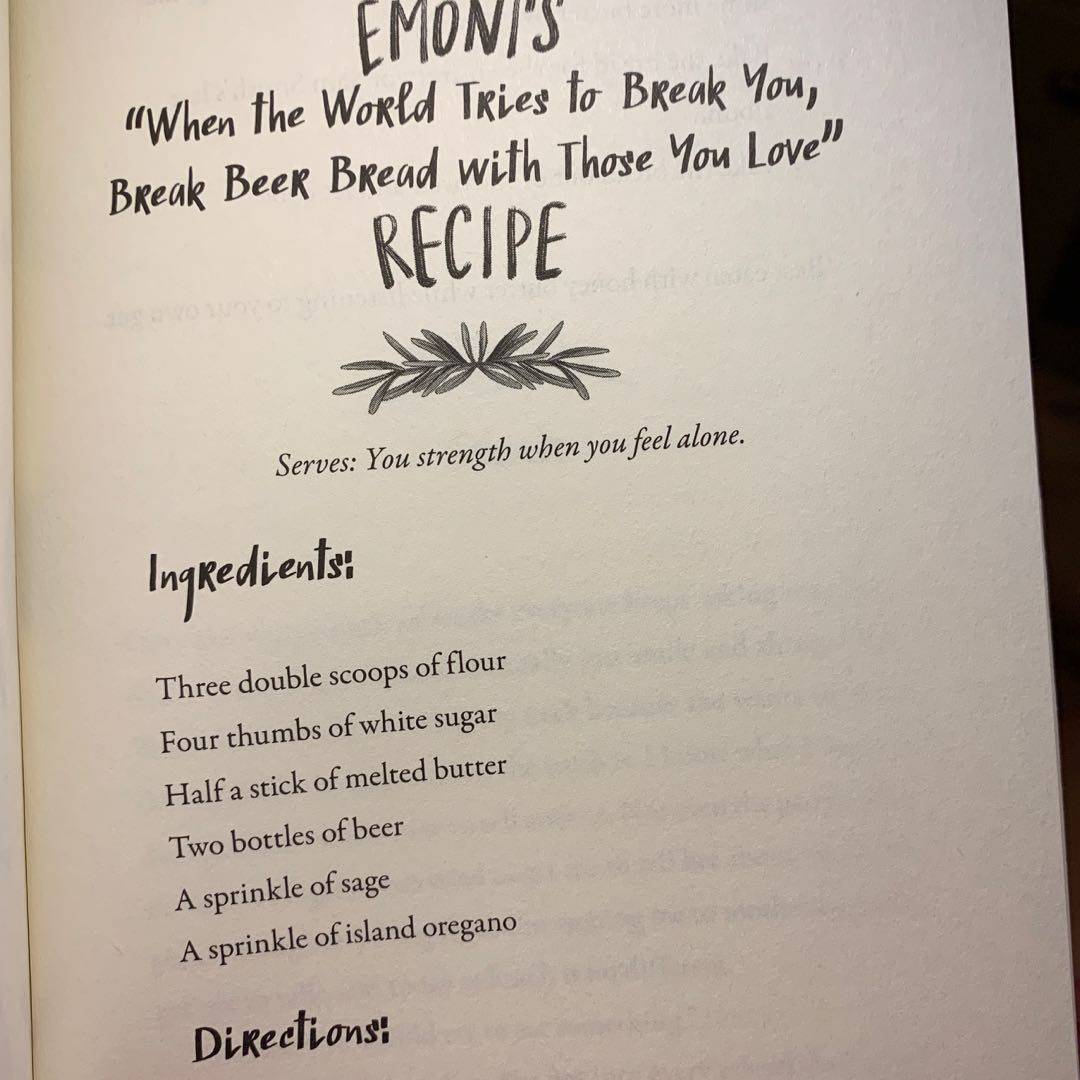 EMONI'S
"When the World Tries to Break You,
Break Beer Bread with Those You Love"
RECIPE
Serves: You strength when you feel alone.
Ingredients:
Three double scoops of flour
Four thumbs of white sugar
Half a stick of melted butter
Two bottles of beer
A sprinkle of sage
A sprinkle of island oregano
Directions: